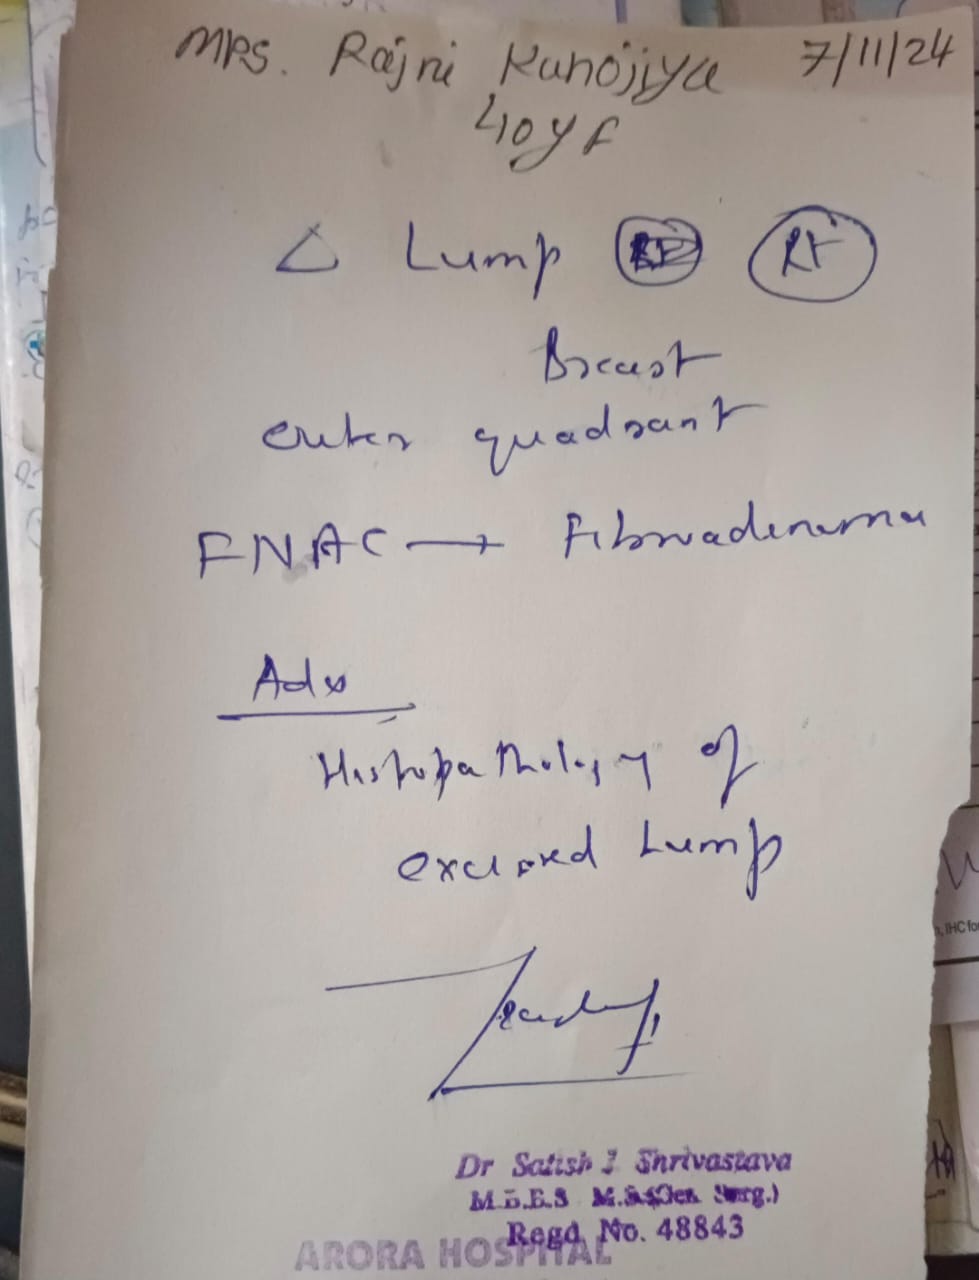 Mrs. Rajni Kanojiya 7/11/24
40 y F
Δ Lump Rt
Breast
outer quadrant
FNAC → Fibroadenoma
Adv
Histopathology of
excised Lump
Dr Satish Shrivastava
M.B.B.S M.S(Gen Surg.)
Regd. No. 48843
ARORA HOSPITAL
, IHC for